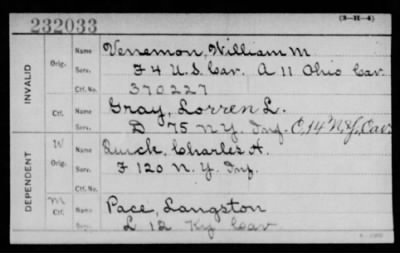 232033
(3-H-4)
INVALID
Orig.
Name
Venemon, William M
Serv.
F 4 U.S. Cav. A 11 Ohio Cav.
Ctf. No.
370227
Ctf.
Name
Gray, Lorren L.
Serv.
D 75 N.Y. Inf. C, 14" N.Y. Cav
DEPENDENT
W
Orig.
Name
Quick, Charles H.
Serv.
F 120 N.Y. Inf.
Ctf. No.
M
Ctf.
Name
Pace, Langston
Serv.
L 12 Ky Cav